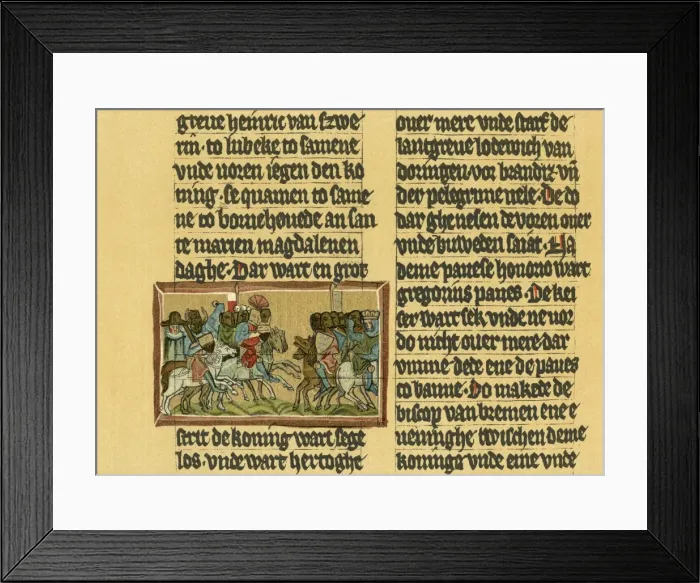 greue heinric van szwe
rin · to lubeke to samene
vnde uoren iegen den ko
ning · se quamen to same
ne to bornehouede an san
te marien magdalenen
daghe · Dar wart en grot
strit de koning wart sege
los · vnde wart hertoghe
ouer mere vnde starf de
lantgreue lodewich van
doringen · vor brandiz · vñ
der pelegrime uele · De do
dar ghenesen de voren ouer
vnde buweden saiat ·
deme pauese honorio wart
gregorius paues · De kei
ser wart sek vnde ne uor
do nicht ouer mere dar
vmme dede ene de paues
to banne · Do makede de
biscop van bremen ene e
ueninghe twischen deme
koninge vnde eme vnde